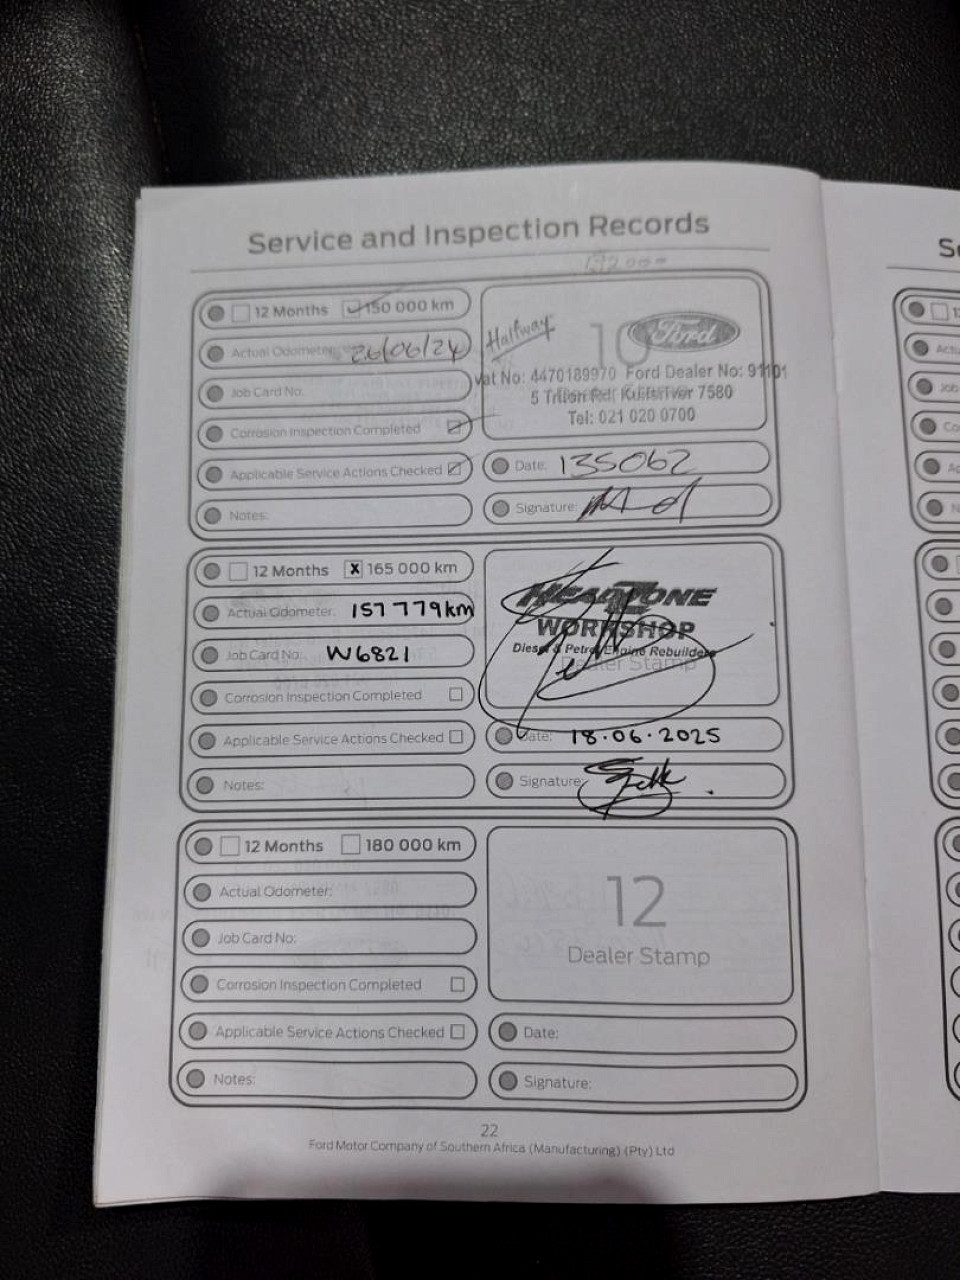 Service and Inspection Records
12 Months 150 000 km
Actual Odometer: 26/06/24
Job Card No:
Corrosion Inspection Completed
Applicable Service Actions Checked
Notes:
Halfway
10
Ford
Vat No: 4470189970 Ford Dealer No: 91101
Rd Kuilsriver 7580
Tel: 021 020 0700
Date: 135062
Signature:
12 Months X 165 000 km
Actual Odometer: 157 779km
Job Card No: W6821
Corrosion Inspection Completed
Applicable Service Actions Checked
Notes:
HEADZONE
WORKSHOP
Diesel & Petrol Engine Rebuilders
Dealer Stamp
Date: 18.06.2025
Signature:
12 Months 180 000 km
Actual Odometer:
Job Card No:
Corrosion Inspection Completed
Applicable Service Actions Checked
Notes:
12
Dealer Stamp
Date:
Signature:
22
Ford Motor Company of Southern Africa (Manufacturing) (Pty) Ltd